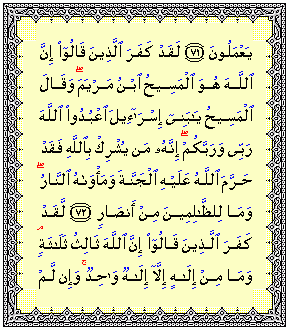 يَعْمَلُونَ ﴿٧١﴾ لَقَدْ كَفَرَ ٱلَّذِينَ قَالُوٓا۟ إِنَّ
ٱللَّهَ هُوَ ٱلْمَسِيحُ ٱبْنُ مَرْيَمَ ۖ وَقَالَ
ٱلْمَسِيحُ يَـٰبَنِىٓ إِسْرَٰٓءِيلَ ٱعْبُدُوا۟ ٱللَّهَ
رَبِّى وَرَبَّكُمْ ۖ إِنَّهُۥ مَن يُشْرِكْ بِٱللَّهِ فَقَدْ
حَرَّمَ ٱللَّهُ عَلَيْهِ ٱلْجَنَّةَ وَمَأْوَىٰهُ ٱلنَّارُ ۖ
وَمَا لِلظَّـٰلِمِينَ مِنْ أَنصَارٍ ﴿٧٢﴾ لَّقَدْ
كَفَرَ ٱلَّذِينَ قَالُوٓا۟ إِنَّ ٱللَّهَ ثَالِثُ ثَلَـٰثَةٍ ۘ
وَمَا مِنْ إِلَـٰهٍ إِلَّآ إِلَـٰهٌ وَٰحِدٌ ۚ وَإِن لَّمْ